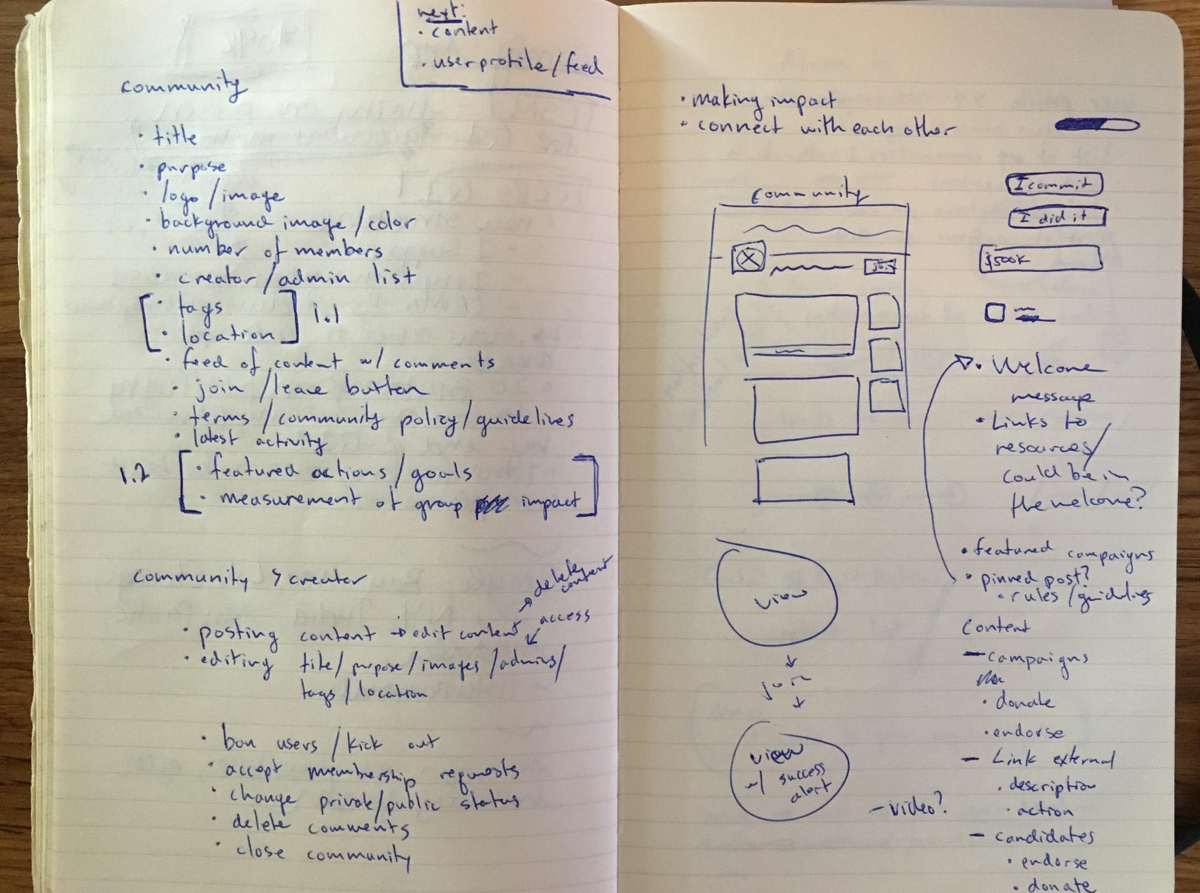 next:
· content
· user profile/feed
community
· title
· purpose
· logo/image
· background image/color
· number of members
· creator/admin list
· tags
· location
1.1
· feed of content w/ comments
· join/leave button
· terms/community policy/guidelines
· latest activity
1.2
· featured actions/goals
· measurement of group impact
community > creator
· posting content → edit content
delete content
access
· editing title/purpose/images/admins/
tags/location
· ban users/kick out
· accept membership requests
· change private/public status
· delete comments
· close community
· making impact
· connect with each other
I commit
I did it
$500K
community
join
· Welcome
message
· Links to
resources/
could be in
the welcome?
· featured campaigns
· pinned post?
· rules/guidelines
view
join
view
w/ success
alert
content
– campaigns
· donate
· endorse
– Link external
· description
· action
– video?
– candidates
· endorse
· donate